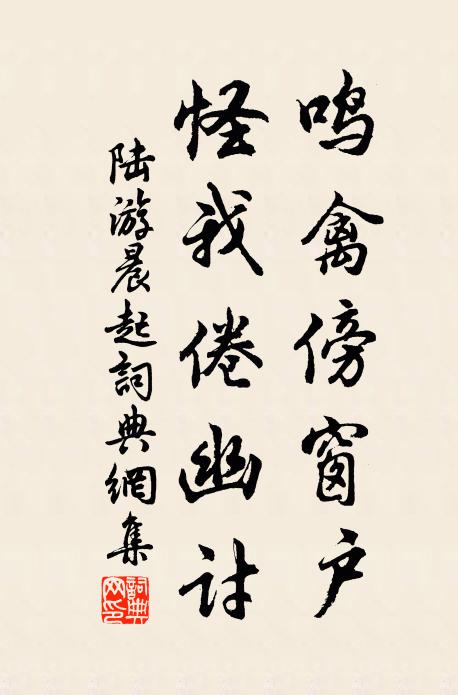 鸣禽傍窗户
怪我倦幽讨
陆游晨起詞典網集
詞典网印